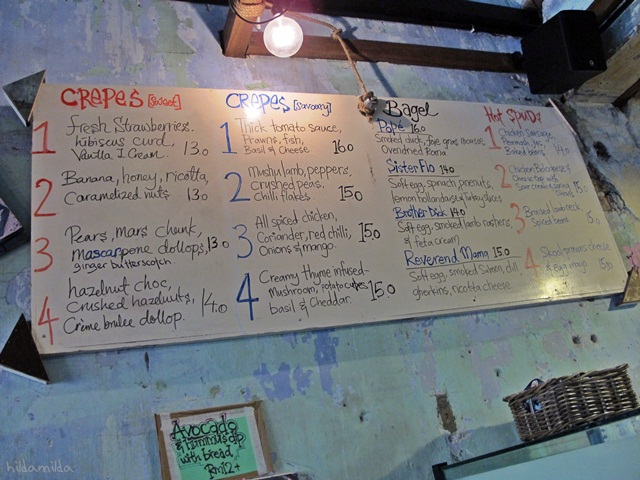 CREPES [sweet]
1 Fresh Strawberries,
hibiscus curd,
Vanilla I.Cream. 13.0
2 Banana, honey, ricotta,
Caramelized nuts 13.0
3 Pears, mars chunk,
mascarpone dollops, 13.0
ginger butterscotch
4 hazelnut choc,
Crushed hazelnuts, 14.0
Crème brulee dollop.
CREPES [savoury]
1 Thick tomato sauce,
Prawns, fish,
Basil & Cheese 16.0
2 Mushy lamb, peppers,
crushed peas,
Chilli flakes 15.0
3 All spiced chicken,
Coriander, red chilli,
Onions & mango. 15.0
4 Creamy thyme infused-
Mushroom, potato cubes,
basil & Cheddar. 15.0
Bagel
Pope 16.0
Smoked duck,
Ovendried Roma
Sister Flo 14.0
Soft egg, spinach, peanuts,
lemon hollandaise & turkey slices
Brother Dick 14.0
(Soft egg, smoked lamb rashers,
& feta cream)
Reverend Mama 15.0
Soft egg, smoked salmon, dill
gherkins, ricotta cheese
Hot Spuds
1 Chicken Sausage,
Baked beans 14.0
2 Chicken
15.0
3 Braised lamb neck
15.0
4 prawns, cheese
15.0
Avocado
& Hummus dip
with bread
RM12+
hildamilda